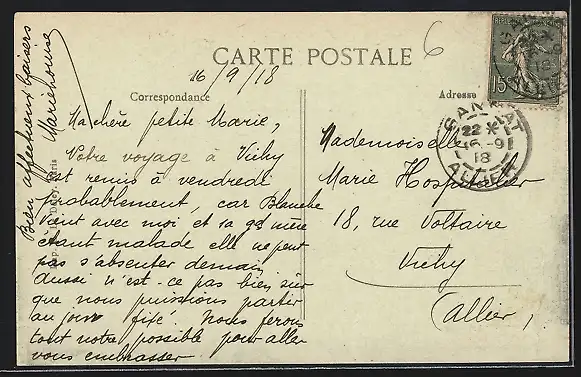 CARTE POSTALE
6
16/9/18
Correspondance
Adresse
REPUBLIQUE FRANÇAISE
15c
GANNAT
22 *
16 - 9
18
ALLIER
Ma chère petite Marie,
Votre voyage à Vichy
est remis à vendredi
probablement, car Blanche
vient avec moi et sa gd mère
étant malade elle ne peut
pas s'absenter demain
Aussi n'est-ce pas bien sûr
que nous puissions partir
au jour fixé Nous ferons
tout notre possible pour aller
vous embrasser
Bien affectueux baisers
Marie Louise
Mademoiselle
Marie Hospitalier
18, rue Voltaire
Vichy
(Allier)
Paris